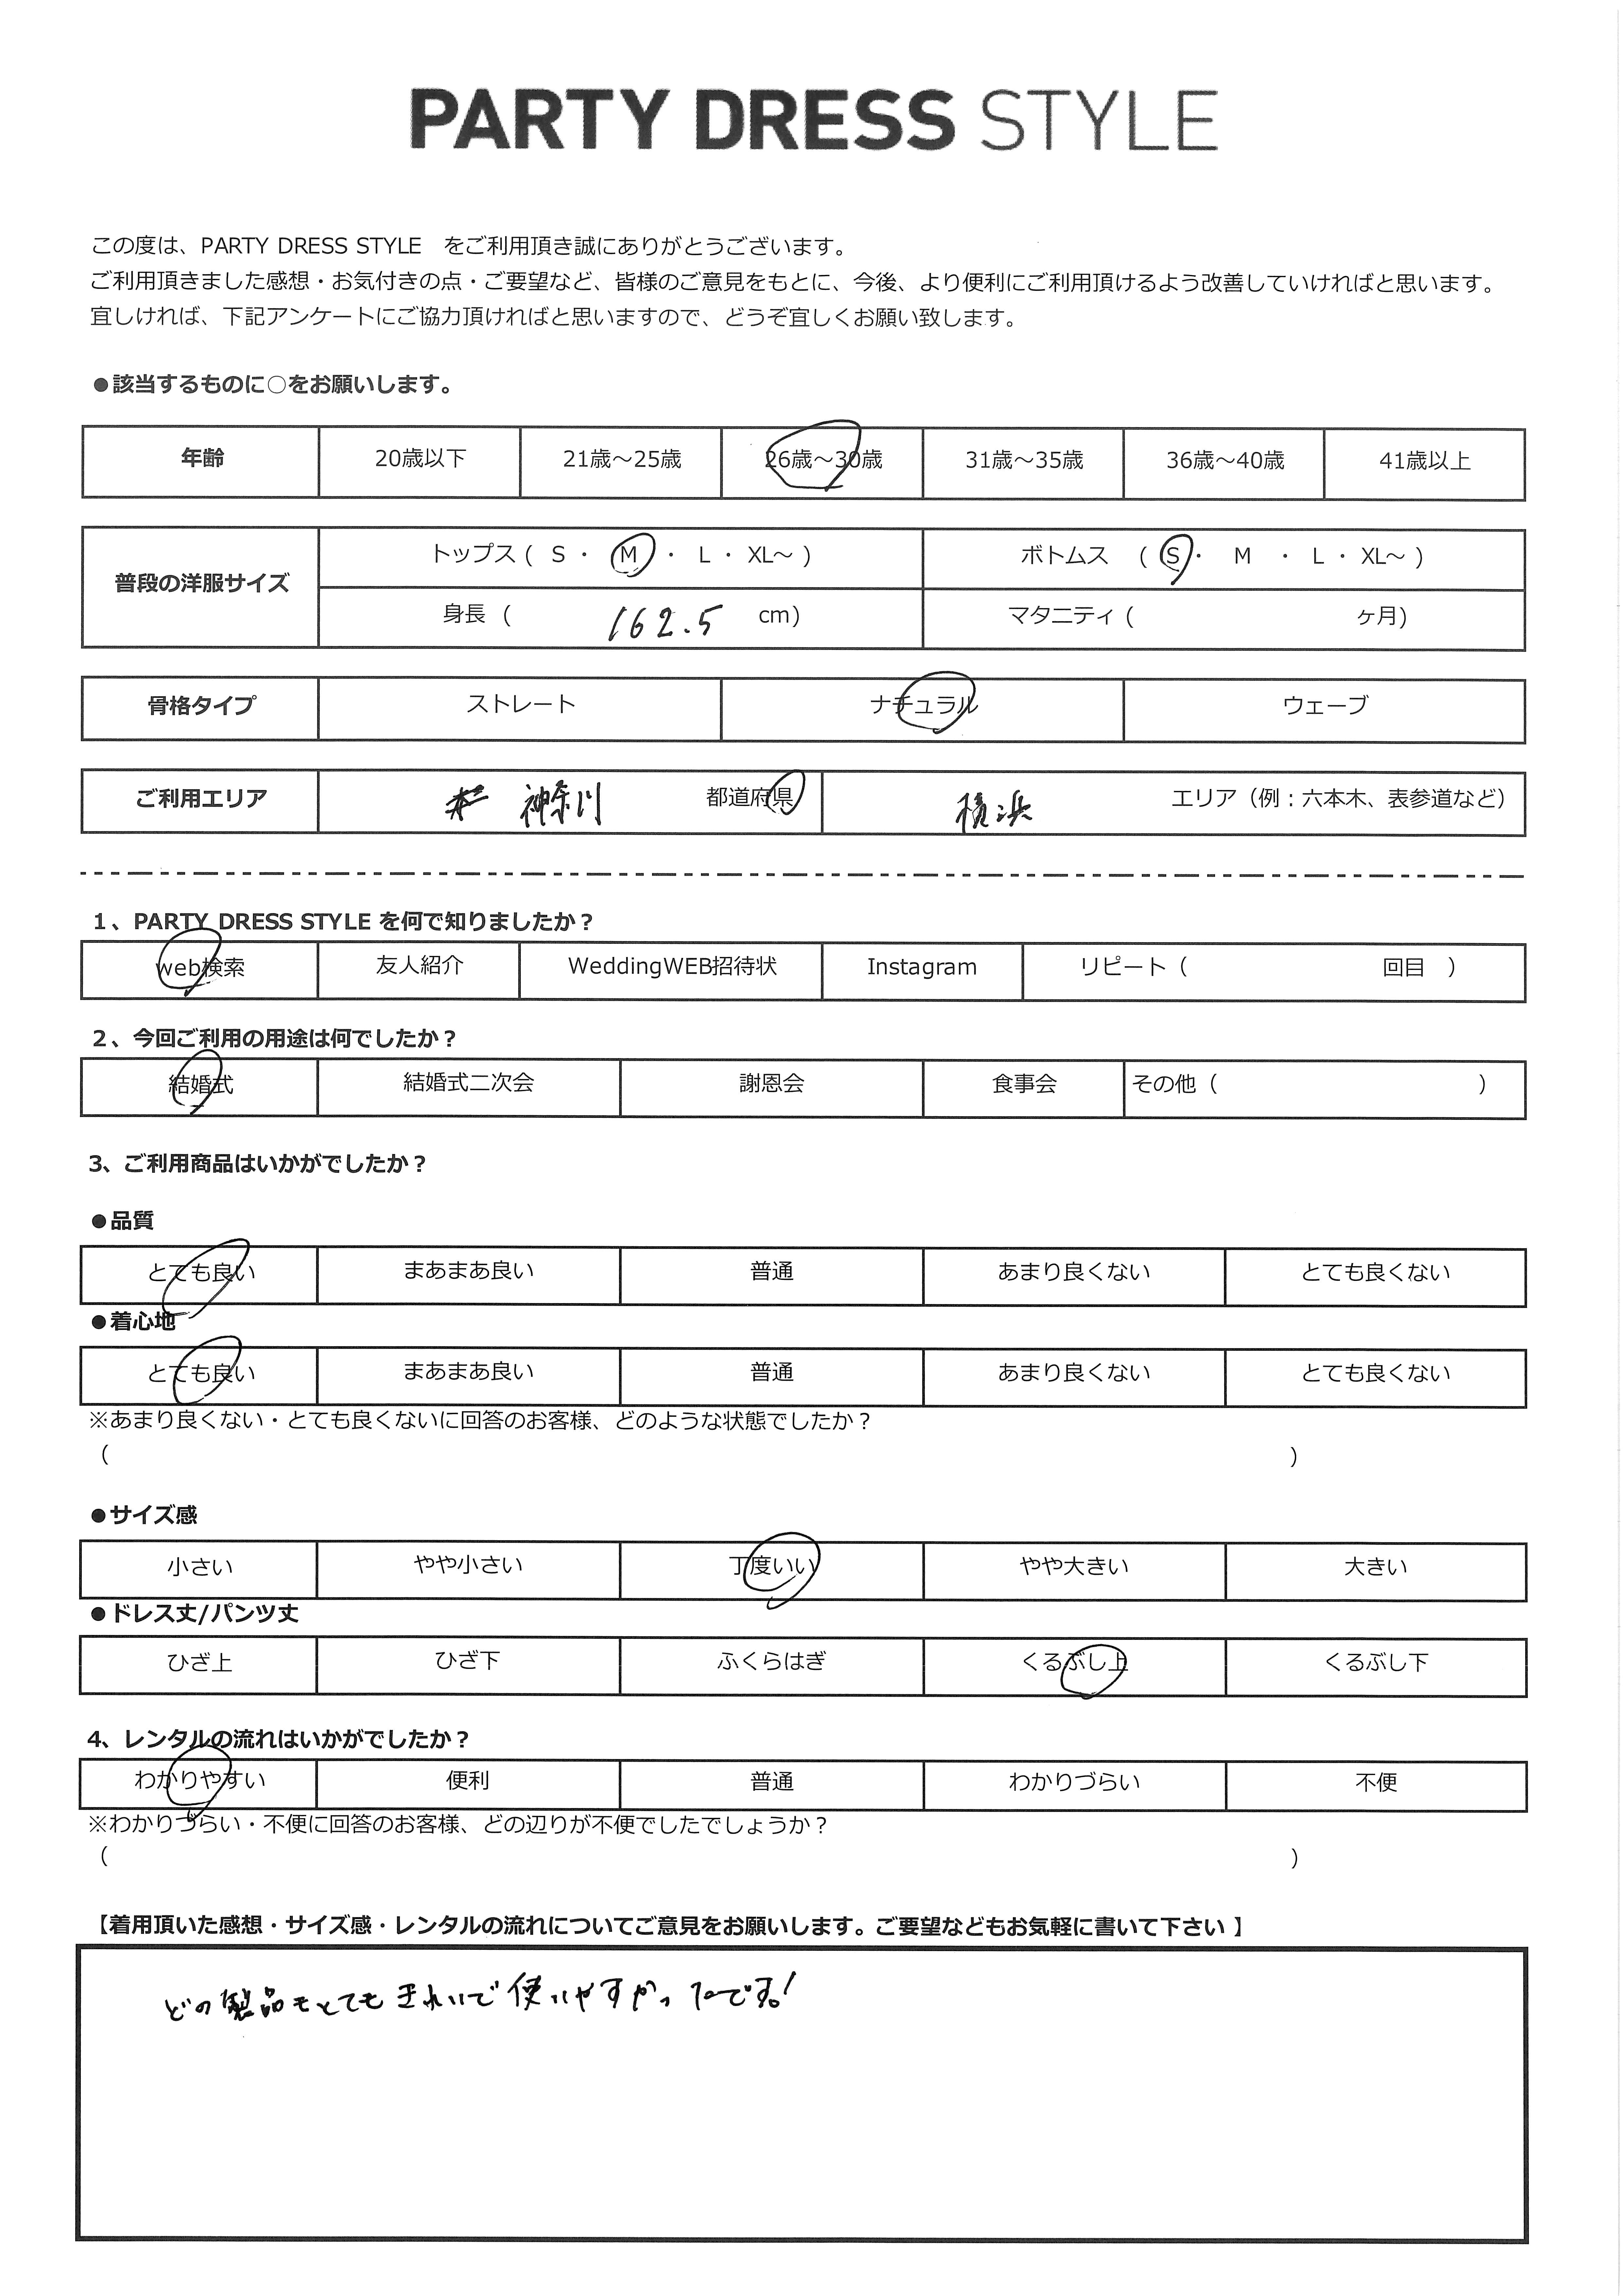 PARTY DRESS STYLE
この度は、PARTY DRESS STYLE　をご利用頂き誠にありがとうございます。
ご利用頂きました感想・お気付きの点・ご要望など、皆様のご意見をもとに、今後、より便利にご利用頂けるよう改善していければと思います。
宜しければ、下記アンケートにご協力頂ければと思いますので、どうぞ宜しくお願い致します。
●該当するものに○をお願いします。
年齢 20歳以下 21歳～25歳 26歳～30歳 31歳～35歳 36歳～40歳 41歳以上
普段の洋服サイズ トップス ( S ・ M ・ L ・ XL～ ) ボトムス ( S ・ M ・ L ・ XL～ )
身長 ( 162.5 cm) マタニティ ( ヶ月)
骨格タイプ ストレート ナチュラル ウェーブ
ご利用エリア 神奈川 都道府県 横浜 エリア（例：六本木、表参道など）
1、PARTY DRESS STYLE を何で知りましたか？
web検索 友人紹介 WeddingWEB招待状 Instagram リピート（ 回目 ）
2、今回ご利用の用途は何でしたか？
結婚式 結婚式二次会 謝恩会 食事会 その他（ ）
3、ご利用商品はいかがでしたか？
●品質
とても良い まあまあ良い 普通 あまり良くない とても良くない
●着心地
とても良い まあまあ良い 普通 あまり良くない とても良くない
※あまり良くない・とても良くないに回答のお客様、どのような状態でしたか？
（ ）
●サイズ感
小さい やや小さい 丁度いい やや大きい 大きい
●ドレス丈/パンツ丈
ひざ上 ひざ下 ふくらはぎ くるぶし上 くるぶし下
4、レンタルの流れはいかがでしたか？
わかりやすい 便利 普通 わかりづらい 不便
※わかりづらい・不便に回答のお客様、どの辺りが不便でしたでしょうか？
（ ）
【着用頂いた感想・サイズ感・レンタルの流れについてご意見をお願いします。ご要望などもお気軽に書いて下さい 】
どの製品もとてもきれいで使いやすかったです!